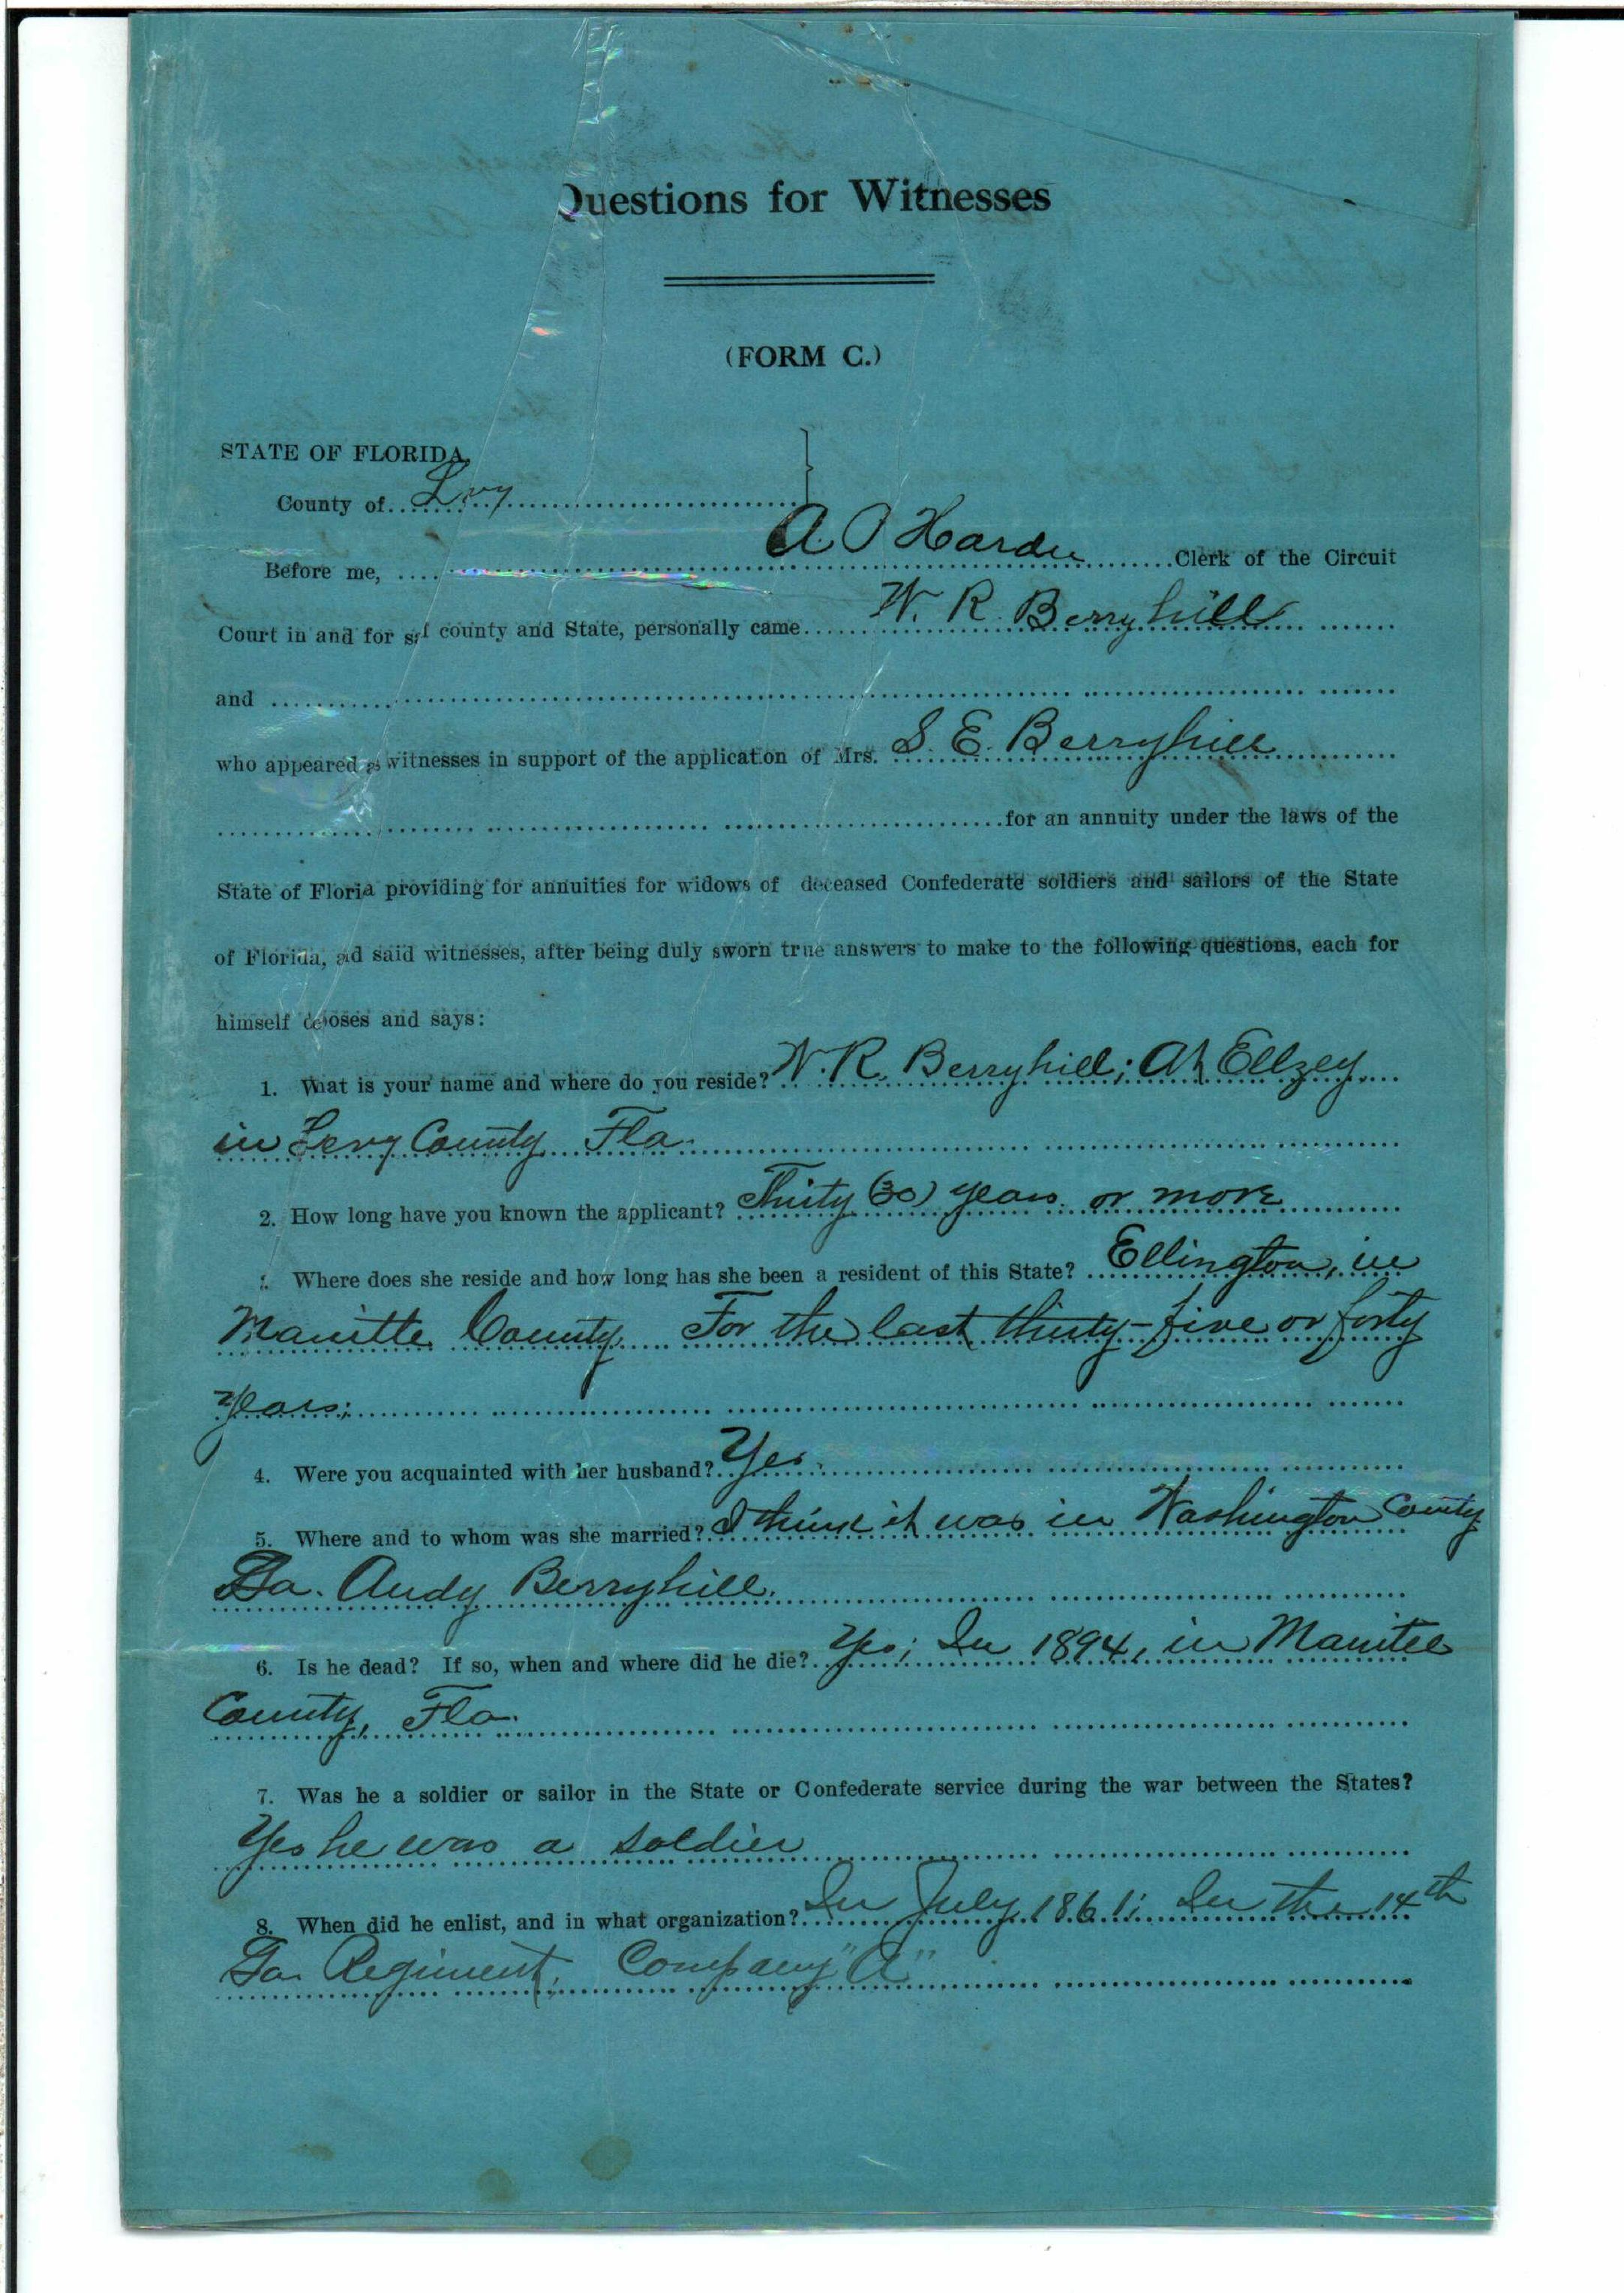 Questions for Witnesses
(FORM C.)
STATE OF FLORIDA,
County of Levy
Before me, A. O Hardee Clerk of the Circuit
Court in and for county and State, personally came W. R. Berryhill
and
who appeared as witnesses in support of the application of Mrs. S. E. Berryhill
for an annuity under the laws of the
State of Floria providing for annuities for widows of deceased Confederate soldiers and sailors of the State
of Florida, ad said witnesses, after being duly sworn true answers to make to the following questions, each for
himself deposes and says:
1. What is your name and where do you reside? W. R. Berryhill; At Ellzey
in Levy County Fla.
2. How long have you known the applicant? Thirty (30) years or more
Where does she reside and how long has she been a resident of this State? Ellington, in
Manitte County For the last thirty-five or forty
years;
4. Were you acquainted with her husband? Yes.
5. Where and to whom was she married? I think it was in Washington County
Ga. Andy Berryhill.
6. Is he dead? If so, when and where did he die? Yes; In 1894, in Manitee
County, Fla.
7. Was he a soldier or sailor in the State or Confederate service during the war between the States?
Yes he was a soldier
8. When did he enlist, and in what organization? In July, 1861; In the 14th
Ga. Regiment; Company "A"